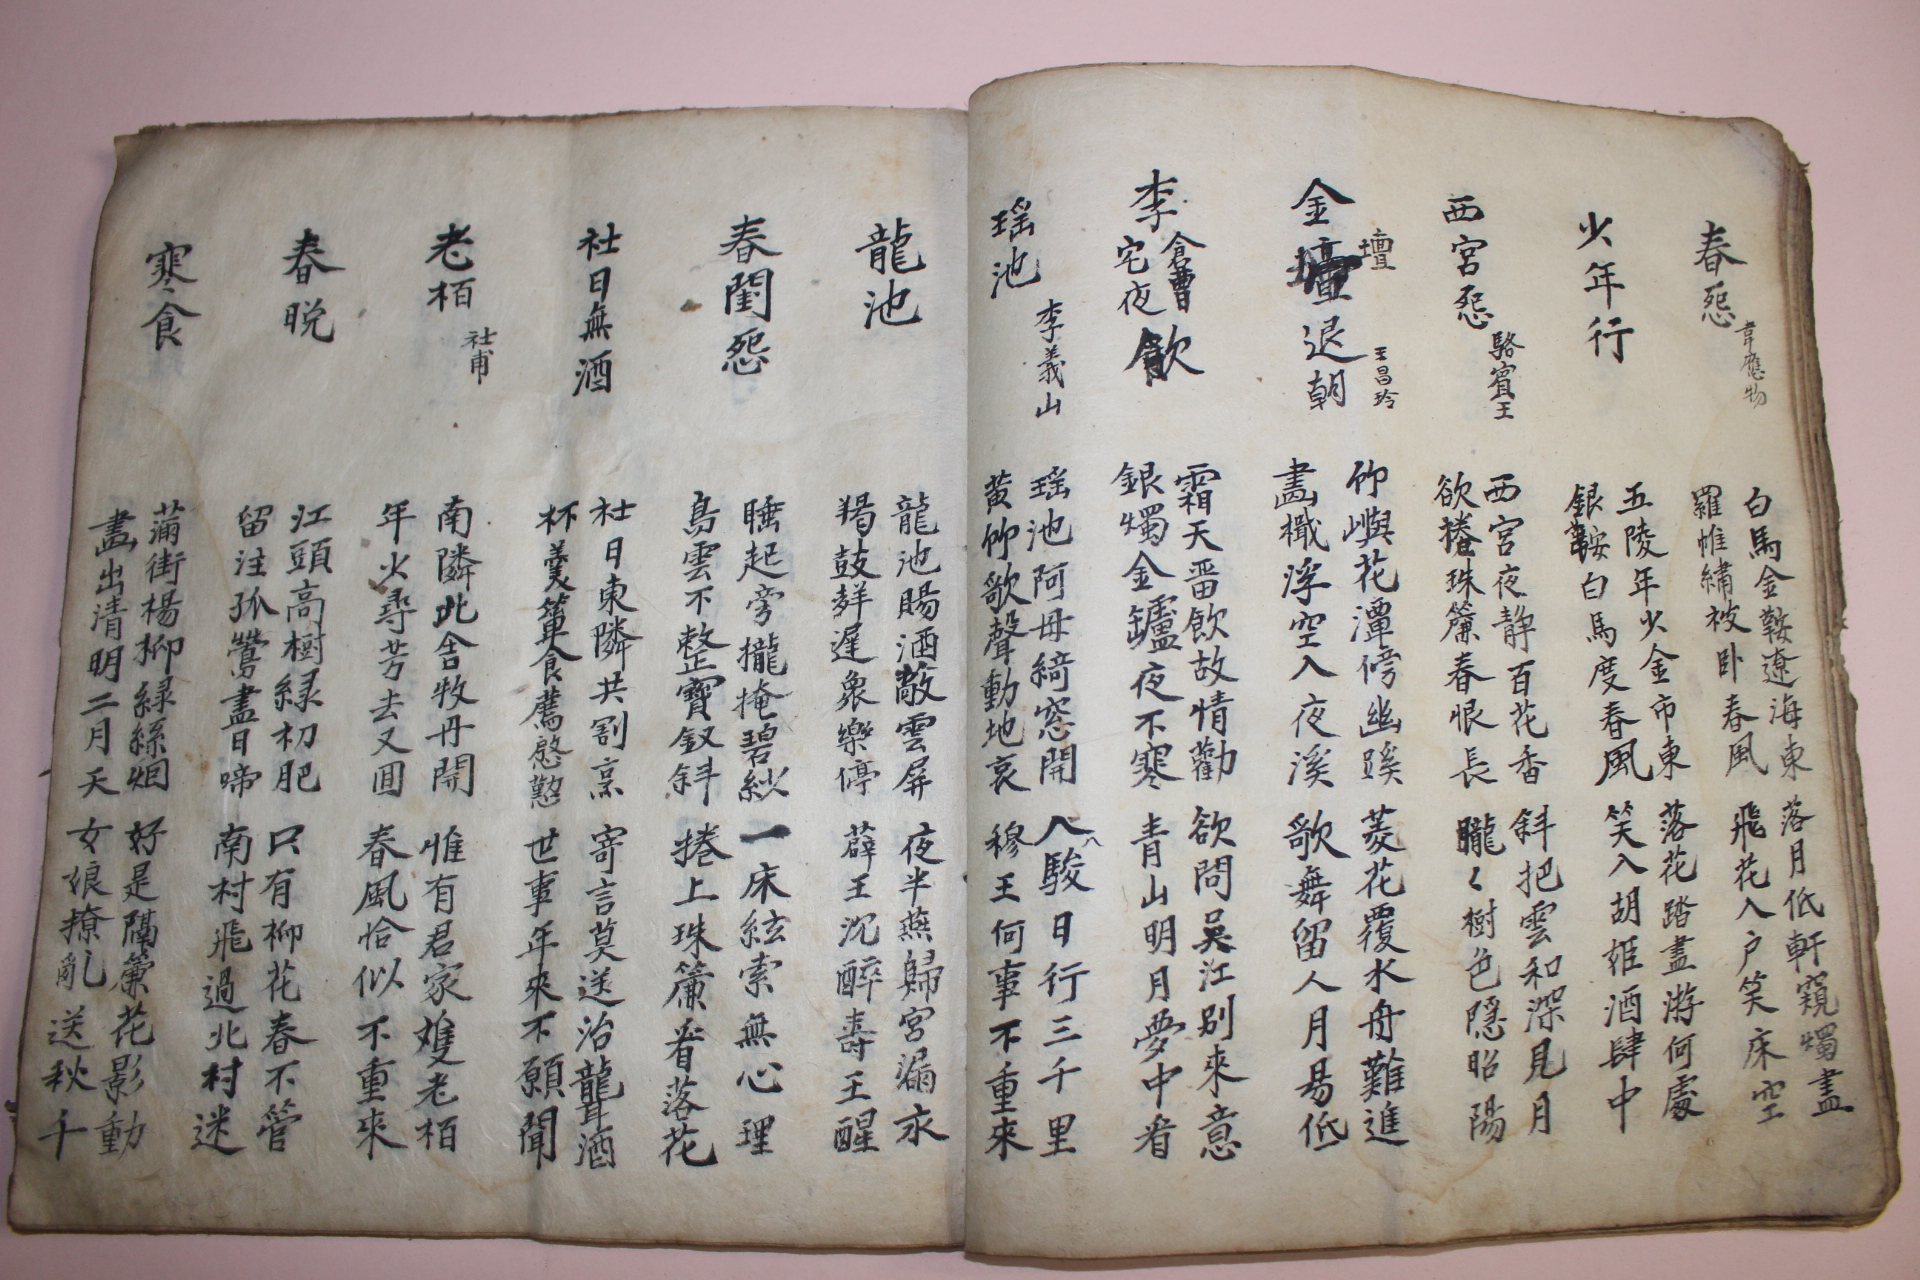 春怨
韋應物
白馬金鞍遼海東
羅帷繡被卧春風
落月低軒窺燭盡
飛花入户笑床空
少年行
五陵年少金市東
銀鞍白馬度春風
落花踏盡游何處
笑入胡姬酒肆中
西宮怨
駱賓王
西宮夜静百花香
欲捲珠簾春恨長
斜把雲和深見月
朧〻樹色隱昭陽
金壇退朝
壇
王昌玲
仰嶼花潭傍幽蹊
畵檝浮空入夜溪
菱花覆水舟難進
歌舞留人月易低
李倉曹宅夜飲
霜天畱飲故情勸
銀燭金鑪夜不寒
欲問吳江別來意
青山明月夢中看
瑶池
李義山
瑶池阿母綺窓開
黃竹歌聲動地哀
八駿日行三千里
穆王何事不重來
龍池
龍池賜酒敞雲屏
羯鼓聲遅衆樂停
夜半燕歸宮漏永
薛王沉醉壽王醒
春閨怨
睡起旁攏掩碧紗
烏雲不整寶釵斜
一床絃索無心理
捲上珠簾看落花
社日無酒
社日東隣共割烹
杯羹簞食薦慇懃
寄言莫送治聾酒
世事年來不願聞
老栢
社甫
南隣此舍牧丹開
年少尋芳去又囬
惟有君家雙老栢
春風恰似不重來
春晩
江頭高樹緑初肥
留注孤鶯盡日啼
只有柳花春不管
南村飛過北村迷
寒食
滿街楊柳緑絲烟
畵出清明二月天
好是隔簾花影動
女娘撩亂送秋千